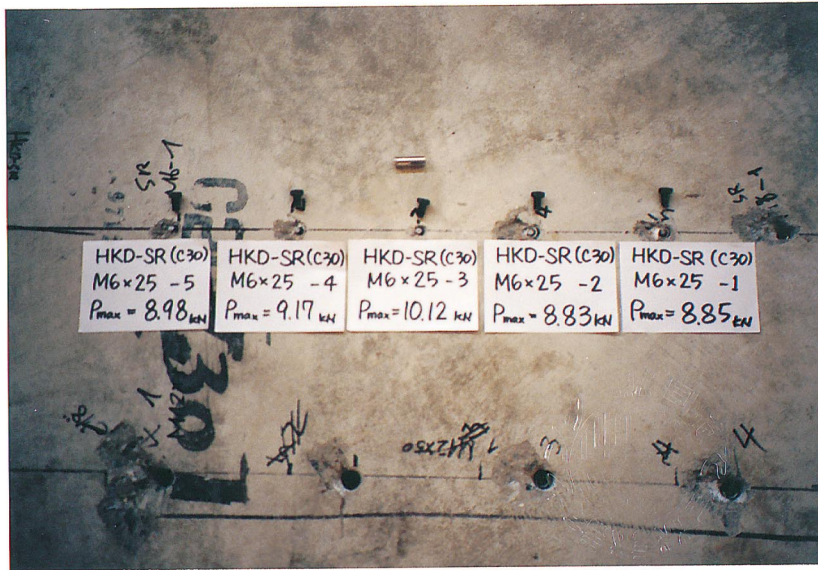 HKD-SR
SR
M6-1
2
3
4
5
SR
HKD-SR (C30)
M6×25 -5
Pmax = 8.98 kN
HKD-SR (C30)
M6×25 -4
Pmax = 9.17 kN
HKD-SR (C30)
M6×25 -3
Pmax = 10.12 kN
HKD-SR (C30)
M6×25 -2
Pmax = 8.83 kN
HKD-SR (C30)
M6×25 -1
Pmax = 8.85 kN
C30
1
M12X50
1
3
4